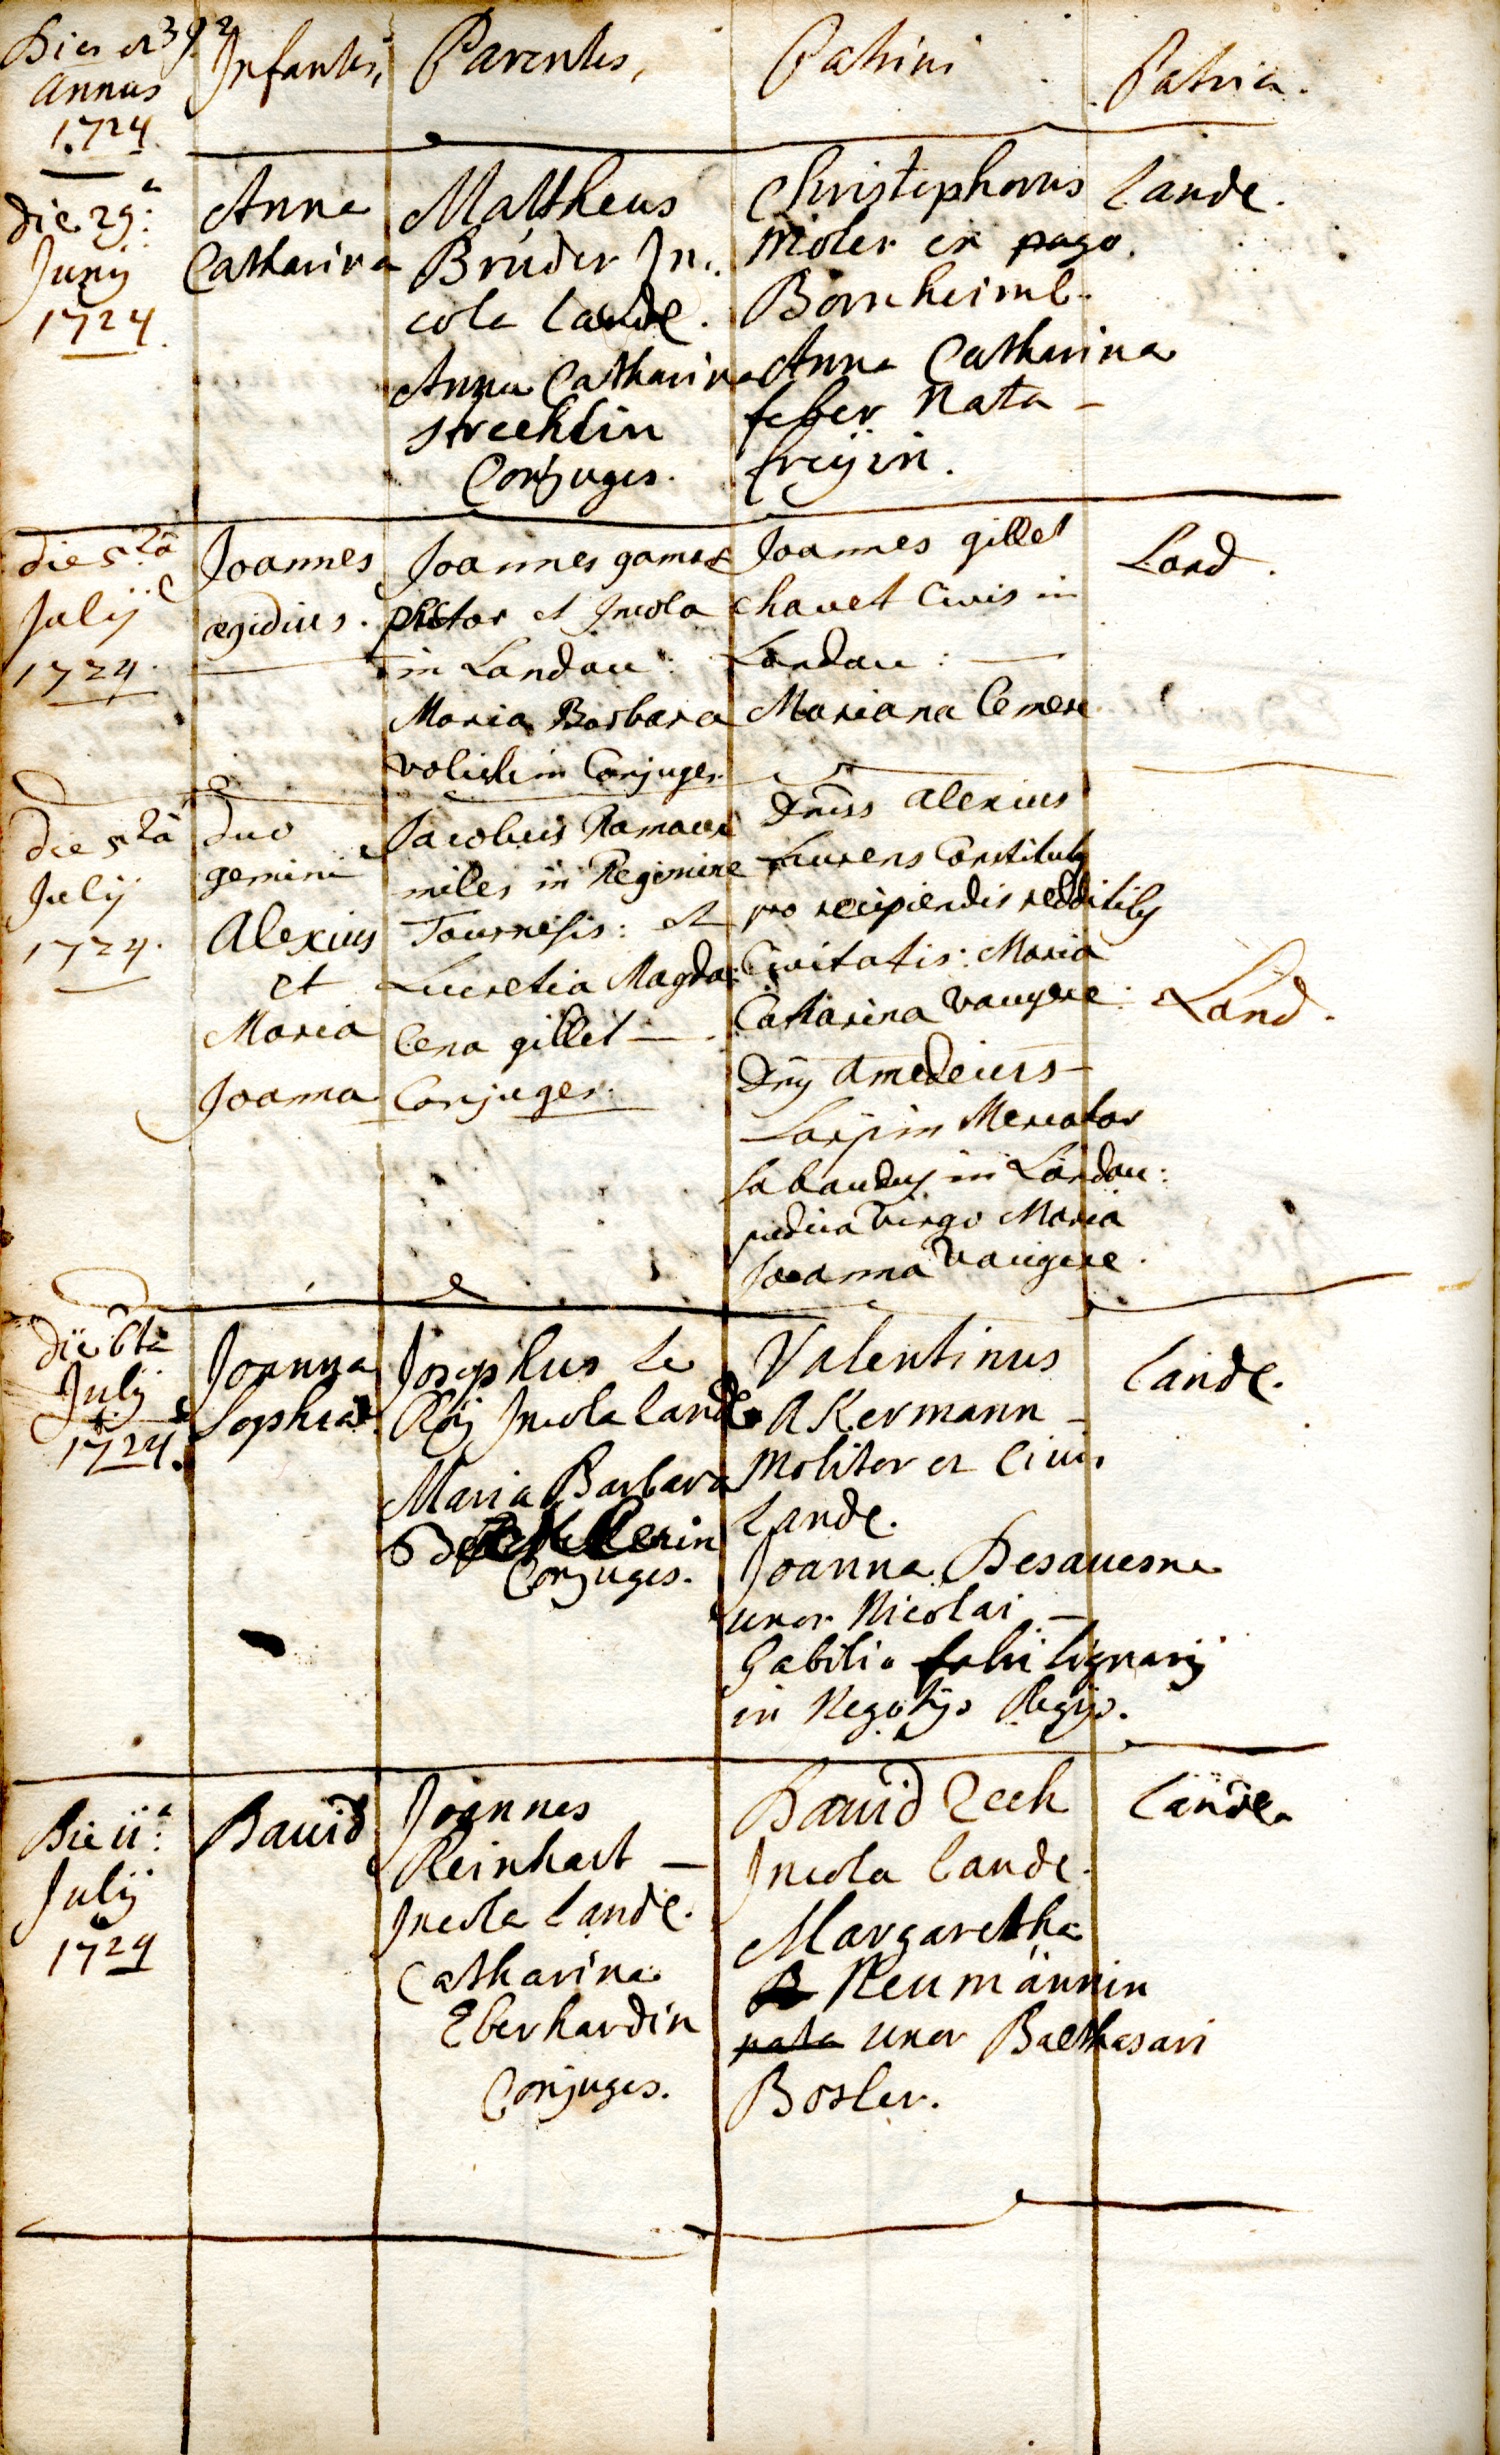 392
Dies et
annus
1724
Infantes,
Parentes,
Patrini
Patria.
die 29:a
Junij
1724
Anna
Catharina
Mattheus
Brúder In:
cola Lande.
Anna Catharina
Strechlin
Conjuges.
Christophorus
Moler ex pago
Bornheim
Anna Catharina
feber nata
freÿin.
Lande.
die 5ta
Julij
1724.
Joannes
ægidius.
Joannes
pictor et Incola
in Landau:
Maria Barbara
Conjuges
Joannes gillet
chavet Civis in
Landau:
Mariana Cemere
Land.
die 5ta
Julij
1724.
duo
gemini
Alexius
et
Maria
Joanna
Jacobus Ramaux
miles in Regimine
Tournesis: et
Lucretia Magda:
lena gillet
Conjuges.
Dnus Alexius
Laurens Constitutus
pro recipiendis redditibus
Civitatis: Maria
Catharina Vaugere:
Dnus Amedeus
Mercator
Sabaudus in Landau:
pudica virgo Maria
Joanna Vaugere.
Land.
die 6ta
Julij
1724.
Joanna
Sophia.
Josephus Le
Roij Incola Lande
Maria Barbara
Conjuges.
Valentinus
AKermann
Molitor et Civis
Lande.
Joanna Desavesne
uxor Nicolai
Gabilio fabri lignarij
in Negotijs Regijs.
Lande.
Die 11:a
Julij
1724
David
Joannes
Reinhart
Incola Lande.
Catharina
Eberhardin
Conjuges.
David Zech
Incola Lande.
Margaretha
Neumännin
nata uxor Balthasari
Bosler.
Lande.